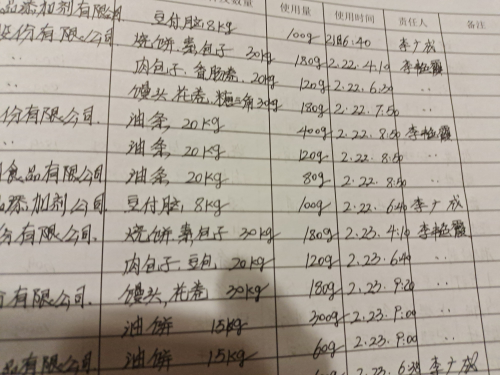 使用量 使用时间 责任人 备注
品添加剂有限公司 豆付脑8kg 100g 6:40 李广成
份有限公司 烧饼.蒸包子 30kg 180g 2.22.4:10 李
肉包子、香肠卷,20kg 120g 2.22.6:30 ..
馒头、花卷,糖三角30kg 180g 2.22.7:50 ..
份有限公司. 油条 20kg 400g 2.22.8:50 李
油条 20kg 120g 2.22.8:50 ..
食品有限公司 油条 20kg 80g 2.22.8:50 ..
品添加剂公司 豆付脑,8kg 100g 2.22.6:40 李广成
份有限公司. 烧饼.蒸包子 30kg 180g 2.23.4:10 李
肉包子.豆包 20kg 120g 2.23.6:40 ..
份有限公司. 馒头,花卷 30kg 180g 2.23.9:20 ..
油饼 15kg 300g 2.23.9:00 ..
品有限公司 油饼 15kg 60g 2.23.9:00 ..
2.23.6:30 李广成